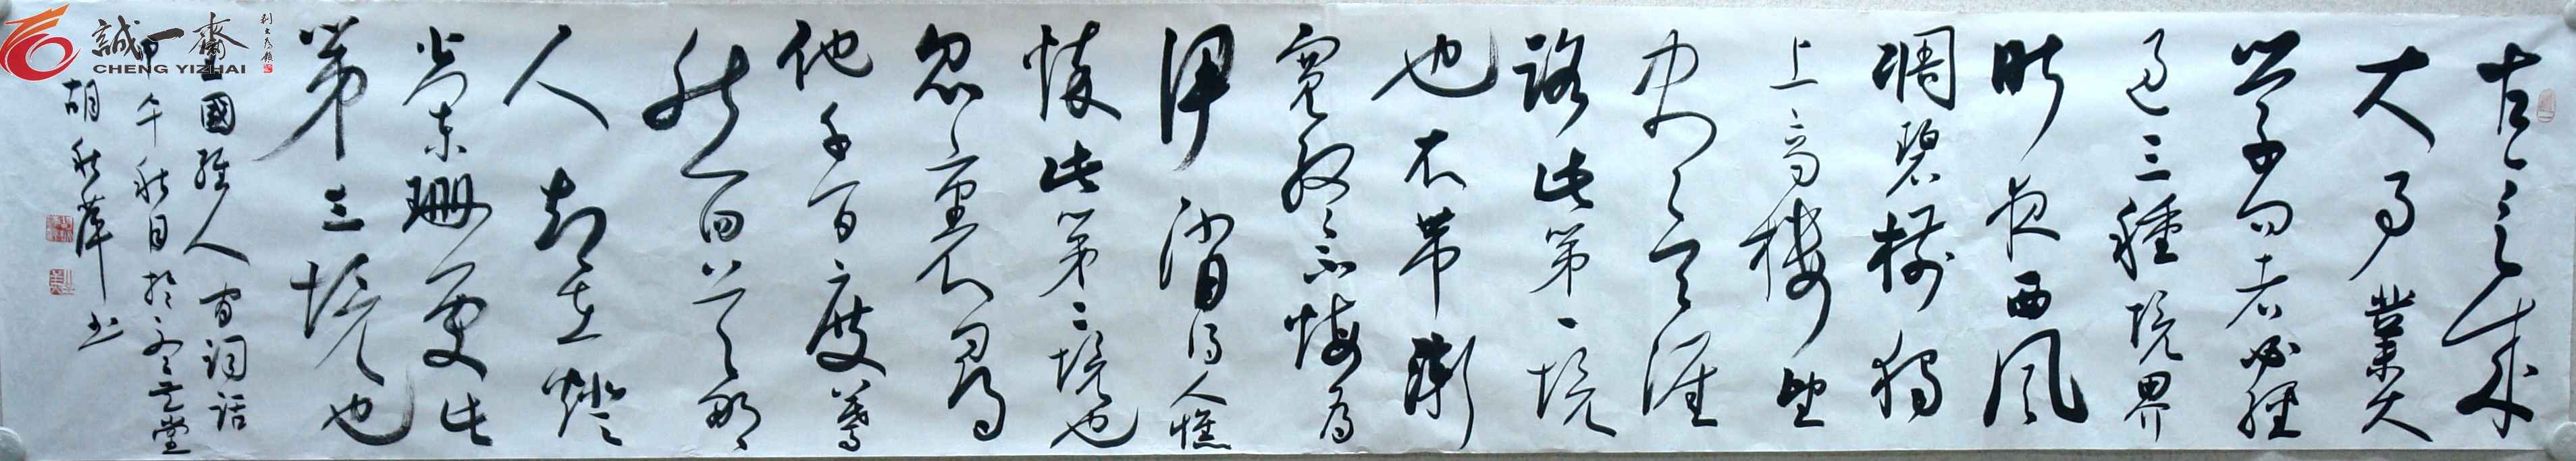 誠一齋
CHENG YIZHAI
古今之成
大事業大
學問者必經
過三種境界
昨夜西風
凋碧樹獨
上高樓望
盡天涯
路此第一境
也衣帶漸
寬終不悔為
伊消得人憔
悴此第二境也
衆里尋
他千百度驀
然回首那
人却在燈火
闌珊處此
第三境也
王國維人間詞話
甲午秋日於堂
胡秋萍书